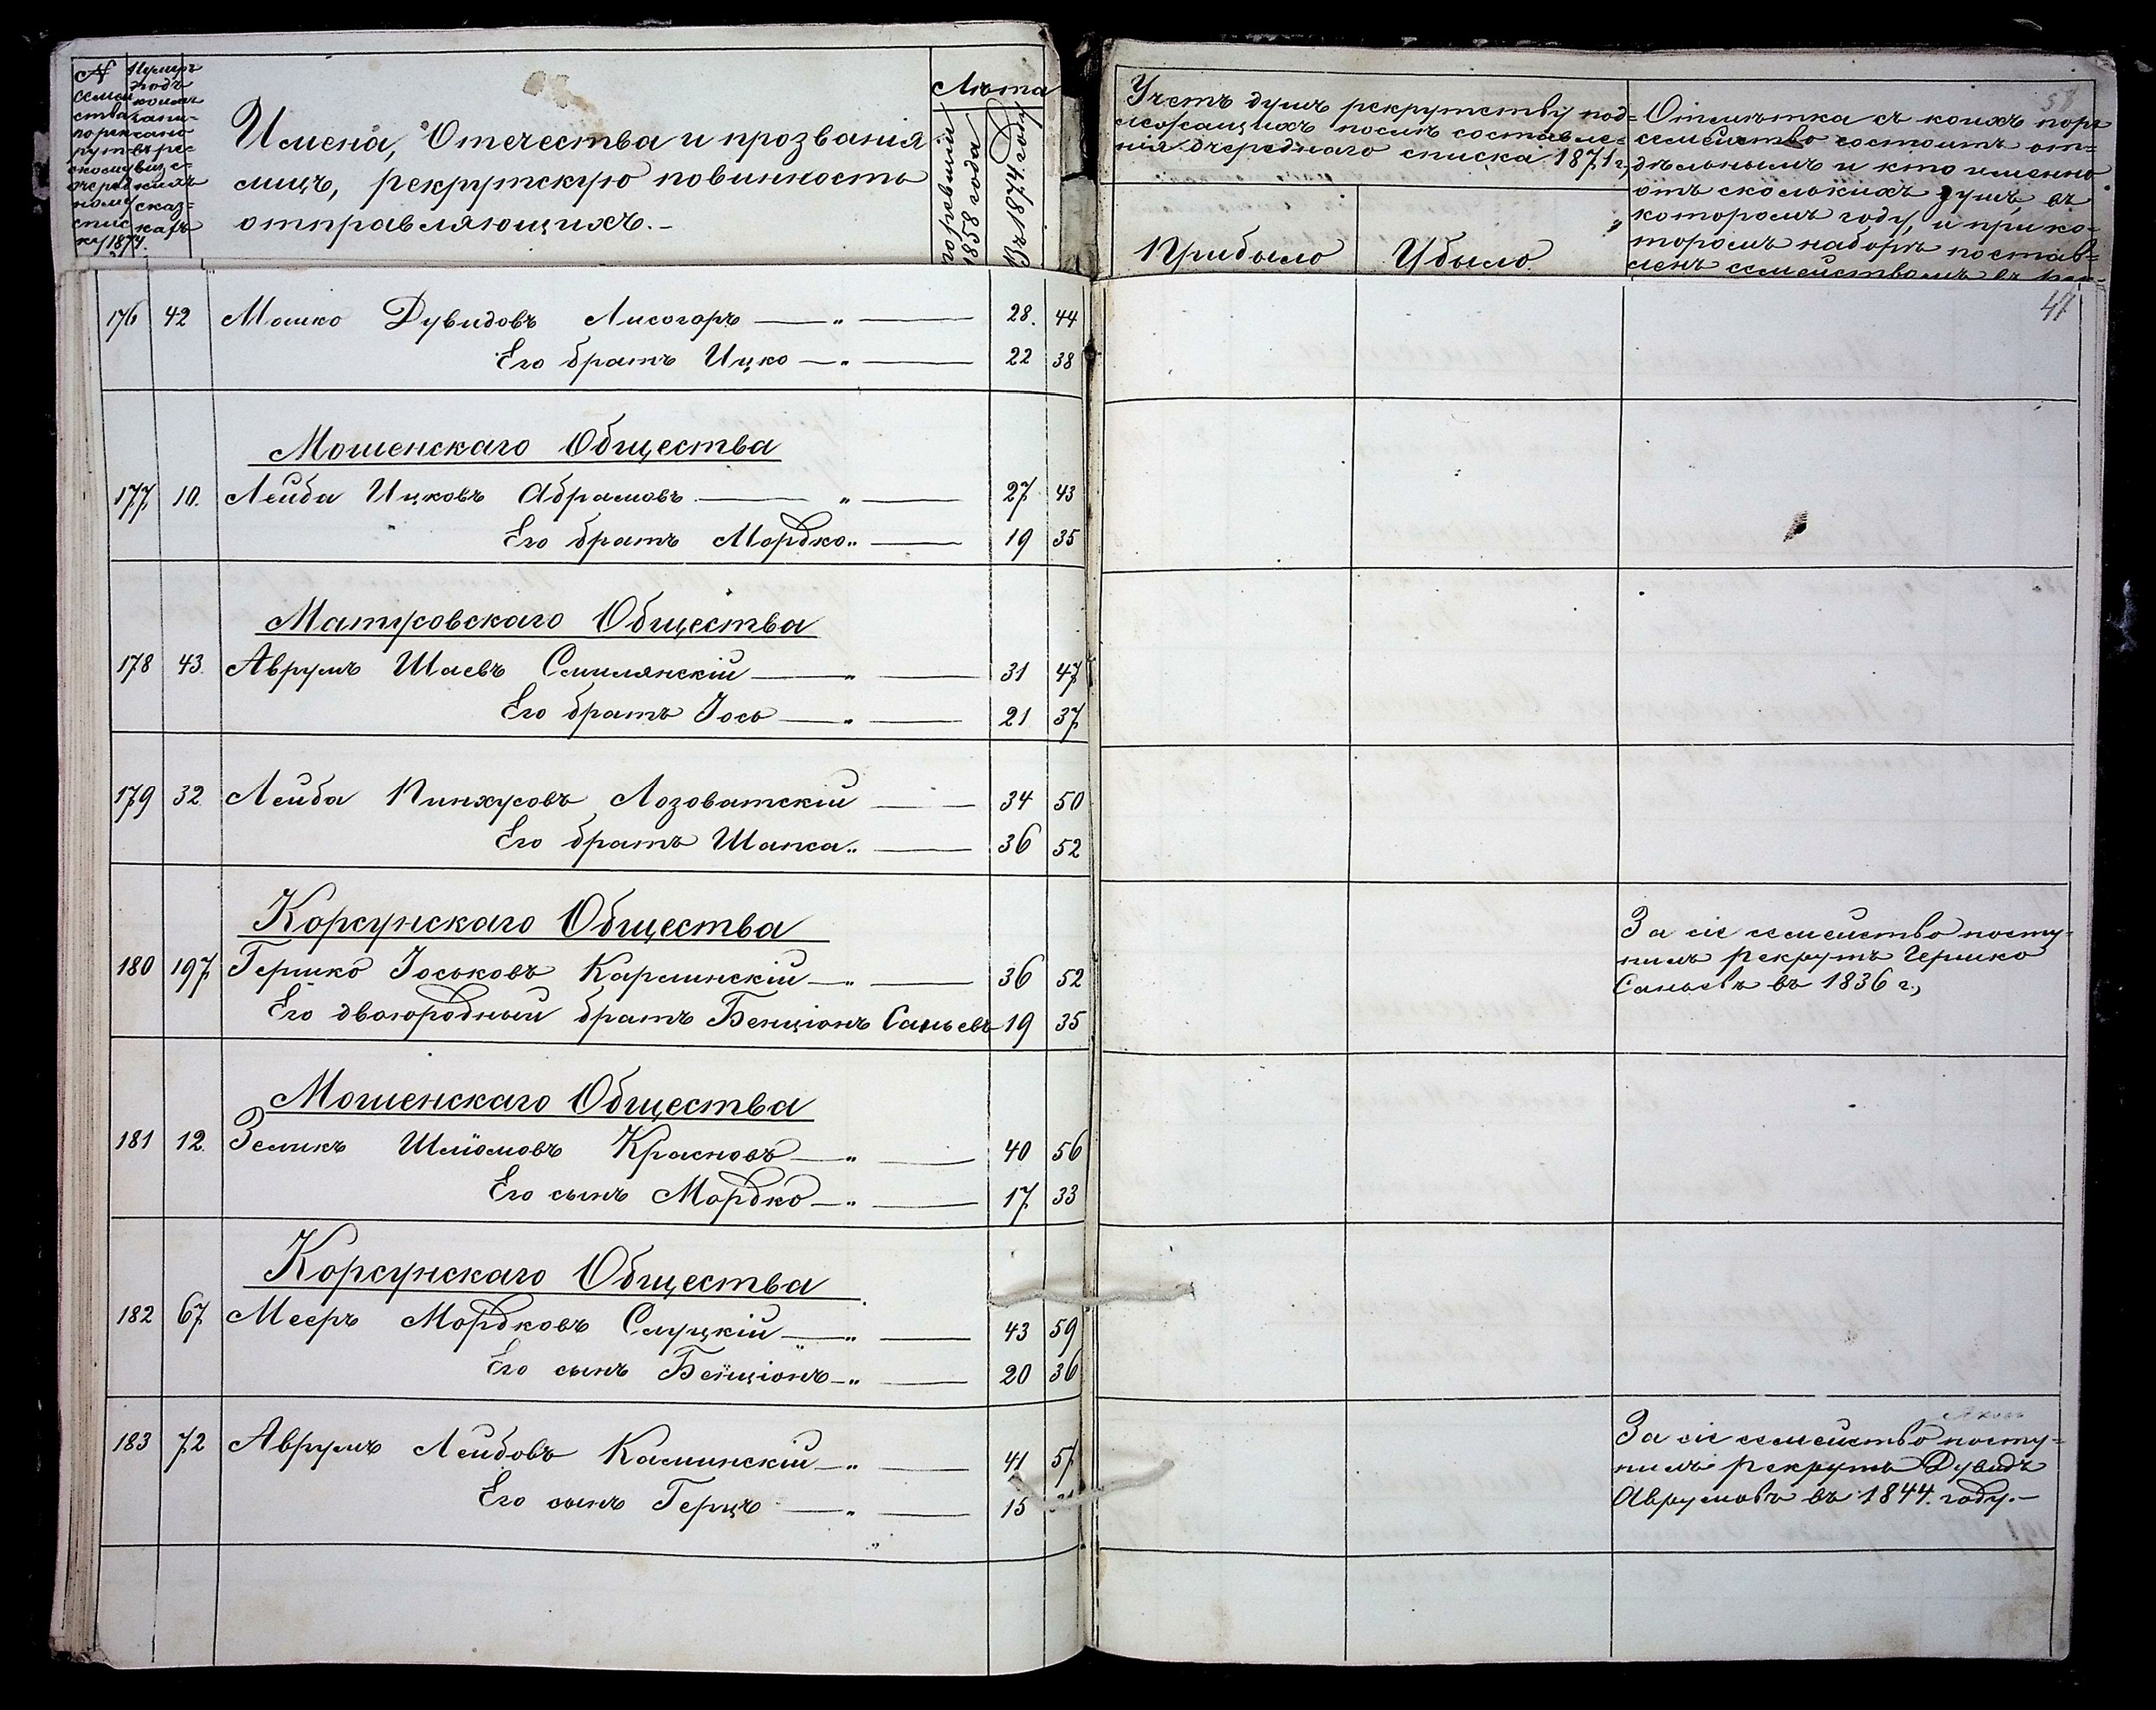 № семейства по рекрутскому очередному списку 1874.
Нумеръ подъ коимъ записано въ ревизскихъ сказкахъ
Имена, Отечества и прозванія
лицъ, рекрутскую повинность
отправляющихъ.-
Лѣта
по ревизіи 1858 года
Въ 1874 году
Учетъ душъ рекрутству под=
лежащихъ послѣ составле=
нія очереднаго списка 1871 г.,
Прибыло
Убыло.
58
Отмѣтка съ коихъ поръ
семейство состоитъ от=
дѣльнымъ и кто именно
отъ сколькихъ душъ, въ
которомъ году, и при ко-
торомъ наборѣ постав=
ленъ семействомъ въ
47
176 42 Мошко Дувидовъ Лисогоръ — „ — 28. 44
Его братъ Ицко — „ — 22 38
Мошенскаго Общества
177. 10. Лейба Ицковъ Абрамовъ — „ — 27. 43
Его братъ Мордко „ — 19 35
Матусовскаго Общества
178 43. Аврумъ Шаевъ Смилянскій — „ — 31 47
Его братъ Іось — „ — 21 37
179 32. Лейба Пинхусовъ Лозоватскій — 34 50
Его братъ Шапса „ — 36 52
Корсунскаго Общества
180 197. Гершко Іоськовъ Карлинскій — „ — 36 52
Его двоюродный братъ Бенціонъ Саньевъ 19 35
За сіе семейство посту=
пилъ рекрутъ Гершко
Саньевъ въ 1836 г.,
Мошенскаго Общества
181 12. Зеликъ Шліомовъ Красновъ — „ — 40 56
Его сынъ Мордко — „ — 17. 33
Корсунскаго Общества
182 67 Мееръ Мордковъ Слуцкій — „ — 43 59
Его сынъ Бенціонъ — „ — 20 36
183 72 Аврумъ Лейбовъ Каминскій — „ — 41 57
Его сынъ Герцъ — „ — 15
За сіе семейство посту=
пилъ рекрутъ Дувидъ
Аврумовъ въ 1844. году.-